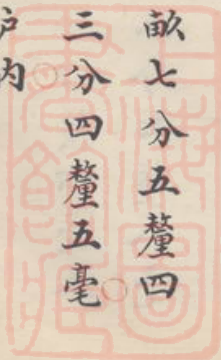 畝七分五釐四
三分四釐五毫
户内